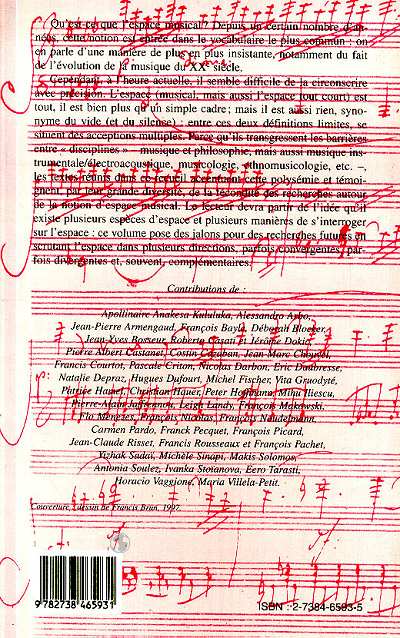 Qu'est-ce que l'espace musical ? Depuis un certain nombre d'an-
nées, cette notion est entrée dans le vocabulaire le plus commun : on
en parle d'une manière de plus en plus insistante, notamment du fait
de l'évolution de la musique du XXe siècle.
Cependant, à l'heure actuelle, il semble difficile de la circonscrire
avec précision. L'espace (musical, mais aussi l'espace tout court) est
tout, il est bien plus qu'un simple cadre ; mais il est aussi rien, syno-
nyme du vide (et du silence) : entre ces deux définitions limites, se
situent des acceptions multiples. Parce qu'ils transgressent les barrières
entre « disciplines » — musique et philosophie, mais aussi musique ins-
trumentale/électroacoustique, musicologie, ethnomusicologie, etc. –,
les textes réunis dans ce recueil accentuent cette polysémie et témoi-
gnent, par leur grande diversité, de la fécondité des recherches autour
de la notion d'espace musical. Le lecteur devra partir de l'idée qu'il
existe plusieurs espèces d'espace et plusieurs manières de s'interroger
sur l'espace : ce volume pose des jalons pour des recherches futures en
scrutant l'espace dans plusieurs directions, parfois convergentes, par-
fois divergentes et, souvent, complémentaires.
Contributions de :
Apollinaire Anakesa Kululuka, Alessandro Arbo,
Jean-Pierre Armengaud, François Bayle, Déborah Blocker,
Jean-Yves Bosseur, Roberto Casati et Jérôme Dokic,
Pierre Albert Castanet, Costin Cazaban, Jean-Marc Chouvel,
Francis Courtot, Pascale Criton, Nicolas Darbon, Eric Daubresse,
Natalie Depraz, Hugues Dufourt, Michel Fischer, Vita Gruodyté,
Patrice Hamel, Christian Hauer, Peter Hoffmann, Mihu Iliescu,
Pierre-Alain Jaffrennou, Leigh Landy, François Makowski,
Flo Menezes, François Nicolas, François Noudelmann,
Carmen Pardo, Franck Pecquet, François Picard,
Jean-Claude Risset, Francis Rousseaux et François Pachet,
Yizhak Sadaï, Michèle Sinapi, Makis Solomos,
Antonia Soulez, Ivanka Stoianova, Eero Tarasti,
Horacio Vaggione, Maria Villela-Petit.
Couverture : dessin de Francis Brun, 1997.
9 782738 465931
ISBN : 2-7384-6593-5